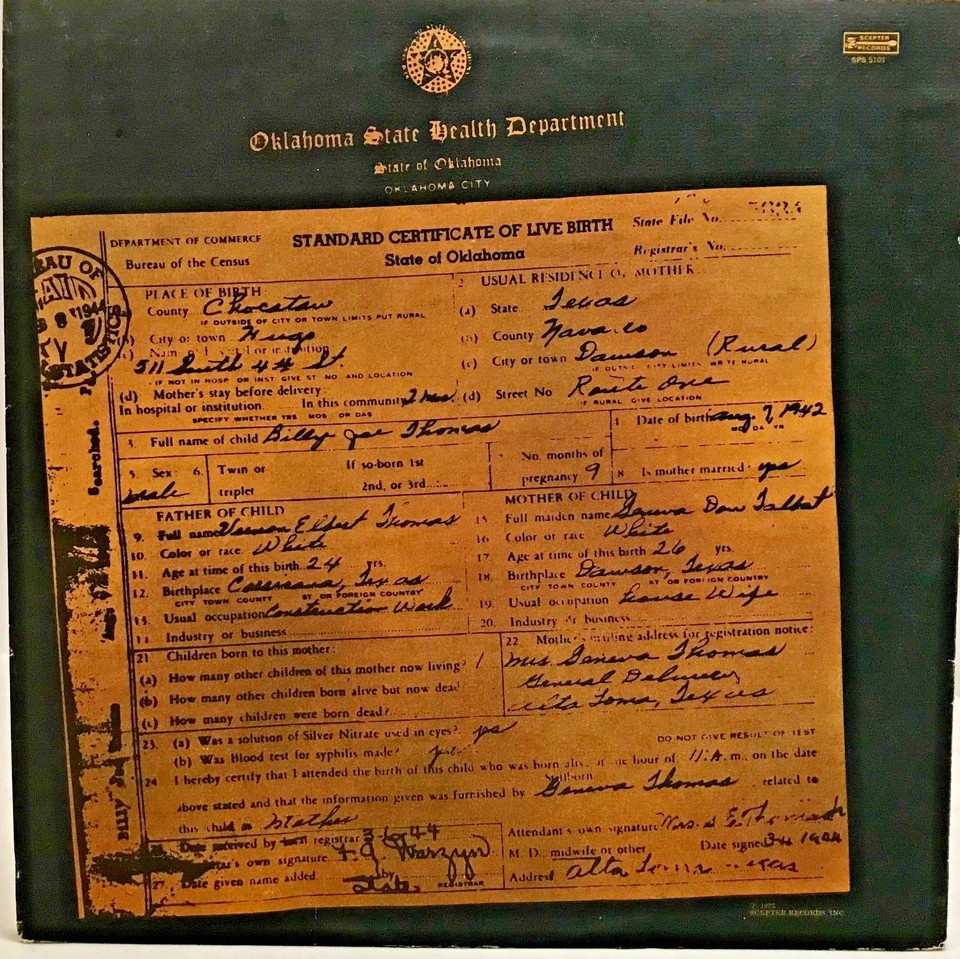 SCEPTER
RECORDS
SPS 5101
Oklahoma State Health Department
State of Oklahoma
OKLAHOMA CITY
State File No.
Registrar's No.
DEPARTMENT OF COMMERCE
Bureau of the Census
STANDARD CERTIFICATE OF LIVE BIRTH
State of Oklahoma
PLACE OF BIRTH
County Choctaw
IF OUTSIDE OF CITY OR TOWN LIMITS PUT RURAL
City or town Hugo
511 South 4th St.
IF NOT IN HOSP OR INST GIVE ST NO AND LOCATION
(d) Mother's stay before delivery
In hospital or institution In this community 2 mos.
SPECIFY WHETHER YRS MOS OR DAS
2 USUAL RESIDENCE OF MOTHER
(a) State Texas
County Navarro
(c) City or town Dawson (Rural)
(d) Street No Route One
IF RURAL GIVE LOCATION
3. Full name of child Billy Joe Thomas
4 Date of birth Aug. 7, 1942
5. Sex male
6. Twin or triplet
If so-born 1st
2nd, or 3rd
No. months of
pregnancy 9
8 Is mother married yes
FATHER OF CHILD
9. Full name Vernon Elbert Thomas
10. Color or race White
11. Age at time of this birth 24 yrs.
12. Birthplace Corsicana, Texas
CITY TOWN COUNTY ST OR FOREIGN COUNTRY
13. Usual occupation Construction Work
14. Industry or business
MOTHER OF CHILD
15 Full maiden name Geneva Talbot
16 Color or race White
17. Age at time of this birth 26 yrs.
18. Birthplace Dawson, Texas
CITY TOWN COUNTY ST OR FOREIGN COUNTRY
19. Usual occupation House Wife
20. Industry or business
21 Children born to this mother:
(a) How many other children of this mother now living? 1
(b) How many other children born alive but now dead
(c) How many children were born dead?
22 Mother's mailing address for registration notice:
Mrs Geneva Thomas
General Delivery
Alta Loma, Texas
23. (a) Was a solution of Silver Nitrate used in eyes? yes
(b) Was Blood test for syphilis made? yes
DO NOT GIVE RESULT OF TEST
24 I hereby certify that I attended the birth of this child who was born alive at the hour of 11: A.m. on the date
stillborn
above stated and that the information given was furnished by Geneva Thomas related to
this child as Mother
Date received by registrar 3-6-44
own signature F. G. Warzyn
27. Date given name added by State
REGISTRAR
Attendant's own signature
M. D., midwife or other Date signed
Address Alta Loma Texas
Searched.
℗ 1972
SCEPTER RECORDS, INC.